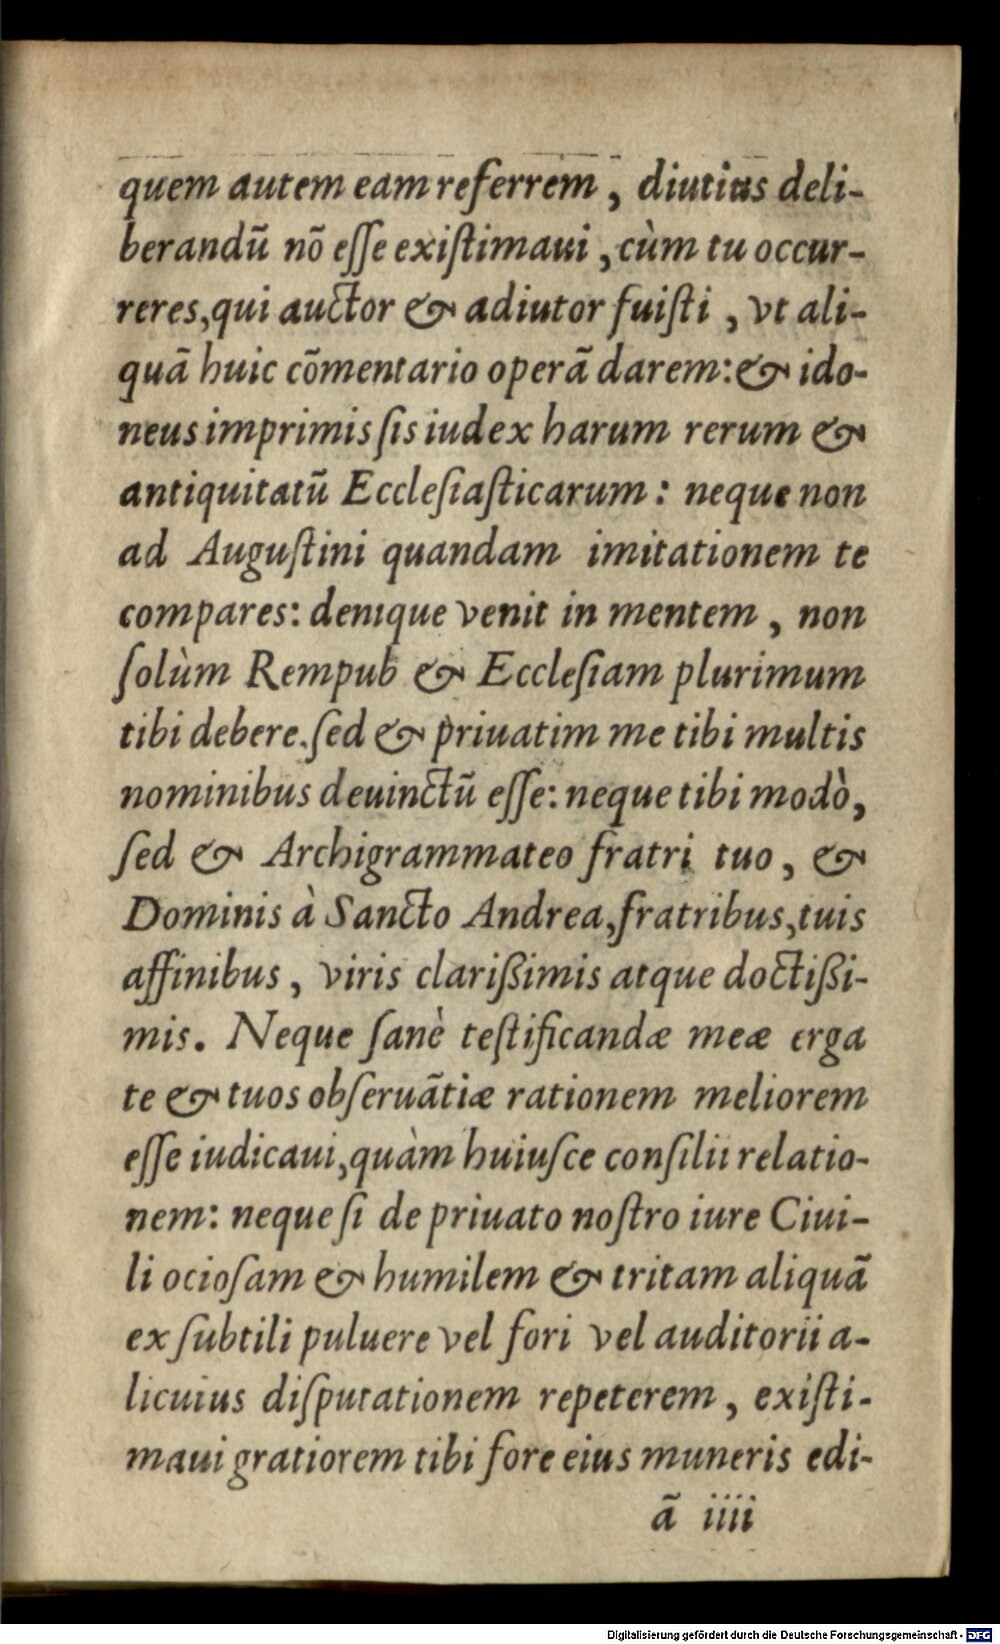 quem autem eam referrem, diutius deli-
berandũ nõ eſſe exiſtimaui, cùm tu occur-
reres, qui auctor & adiutor fuiſti, vt ali-
quã huic cõmentario operã darem: & ido-
neus imprimis ſis iudex harum rerum &
antiquitatũ Eccleſiaſticarum: neque non
ad Auguſtini quandam imitationem te
compares: denique venit in mentem, non
ſolùm Rempub & Eccleſiam plurimum
tibi debere. ſed & priuatim me tibi multis
nominibus deuinctũ eſſe: neque tibi modò,
ſed & Archigrammateo fratri tuo, &
Dominis à Sancto Andrea, fratribus, tuis
affinibus, viris clarißimis atque doctißi-
mis. Neque ſanè teſtificandæ meæ erga
te & tuos obſeruãtiæ rationem meliorem
eſſe iudicaui, quàm huiuſce conſilii relatio-
nem: neque ſi de priuato noſtro iure Ciui-
li ocioſam & humilem & tritam aliquã
ex ſubtili puluere vel fori vel auditorii a-
licuius diſputationem repeterem, exiſti-
maui gratiorem tibi fore eius muneris edi-
ã iiii
Digitalisierung gefördert durch die Deutsche Forschungsgemeinschaft - DFG